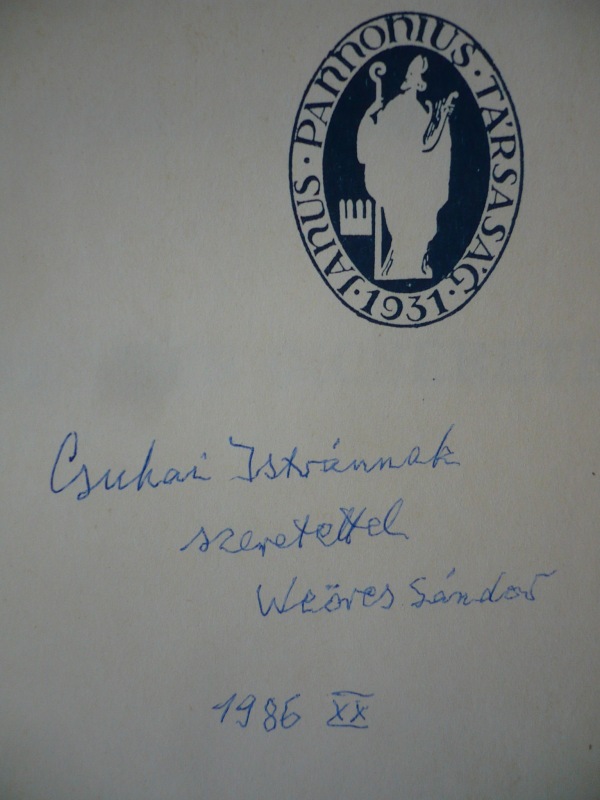 JANUS · PANNONIUS · TÁRSASÁG · 1931 ·
Csukai Istvánnak
szeretettel
Weöres Sándor
1986 XX